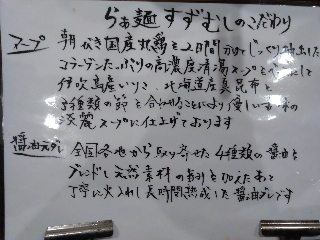 らぁ麺すずむしのこだわり
スープ 朝びき国産丸鶏を2日間かけてじっくり抽出した
コラーゲンたっぷりの高濃度清湯スープをベースにして
伊吹島産いりこ、北海道産真昆布と
3種類の節を合わせることにより優しい味の
淡麗スープに仕上げております
醤油ダレ 全国各地から取り寄せた4種類の醤油を
ブレンドし天然素材の旨味を加えたあと
丁寧に火入れし長時間熟成した醤油ダレです